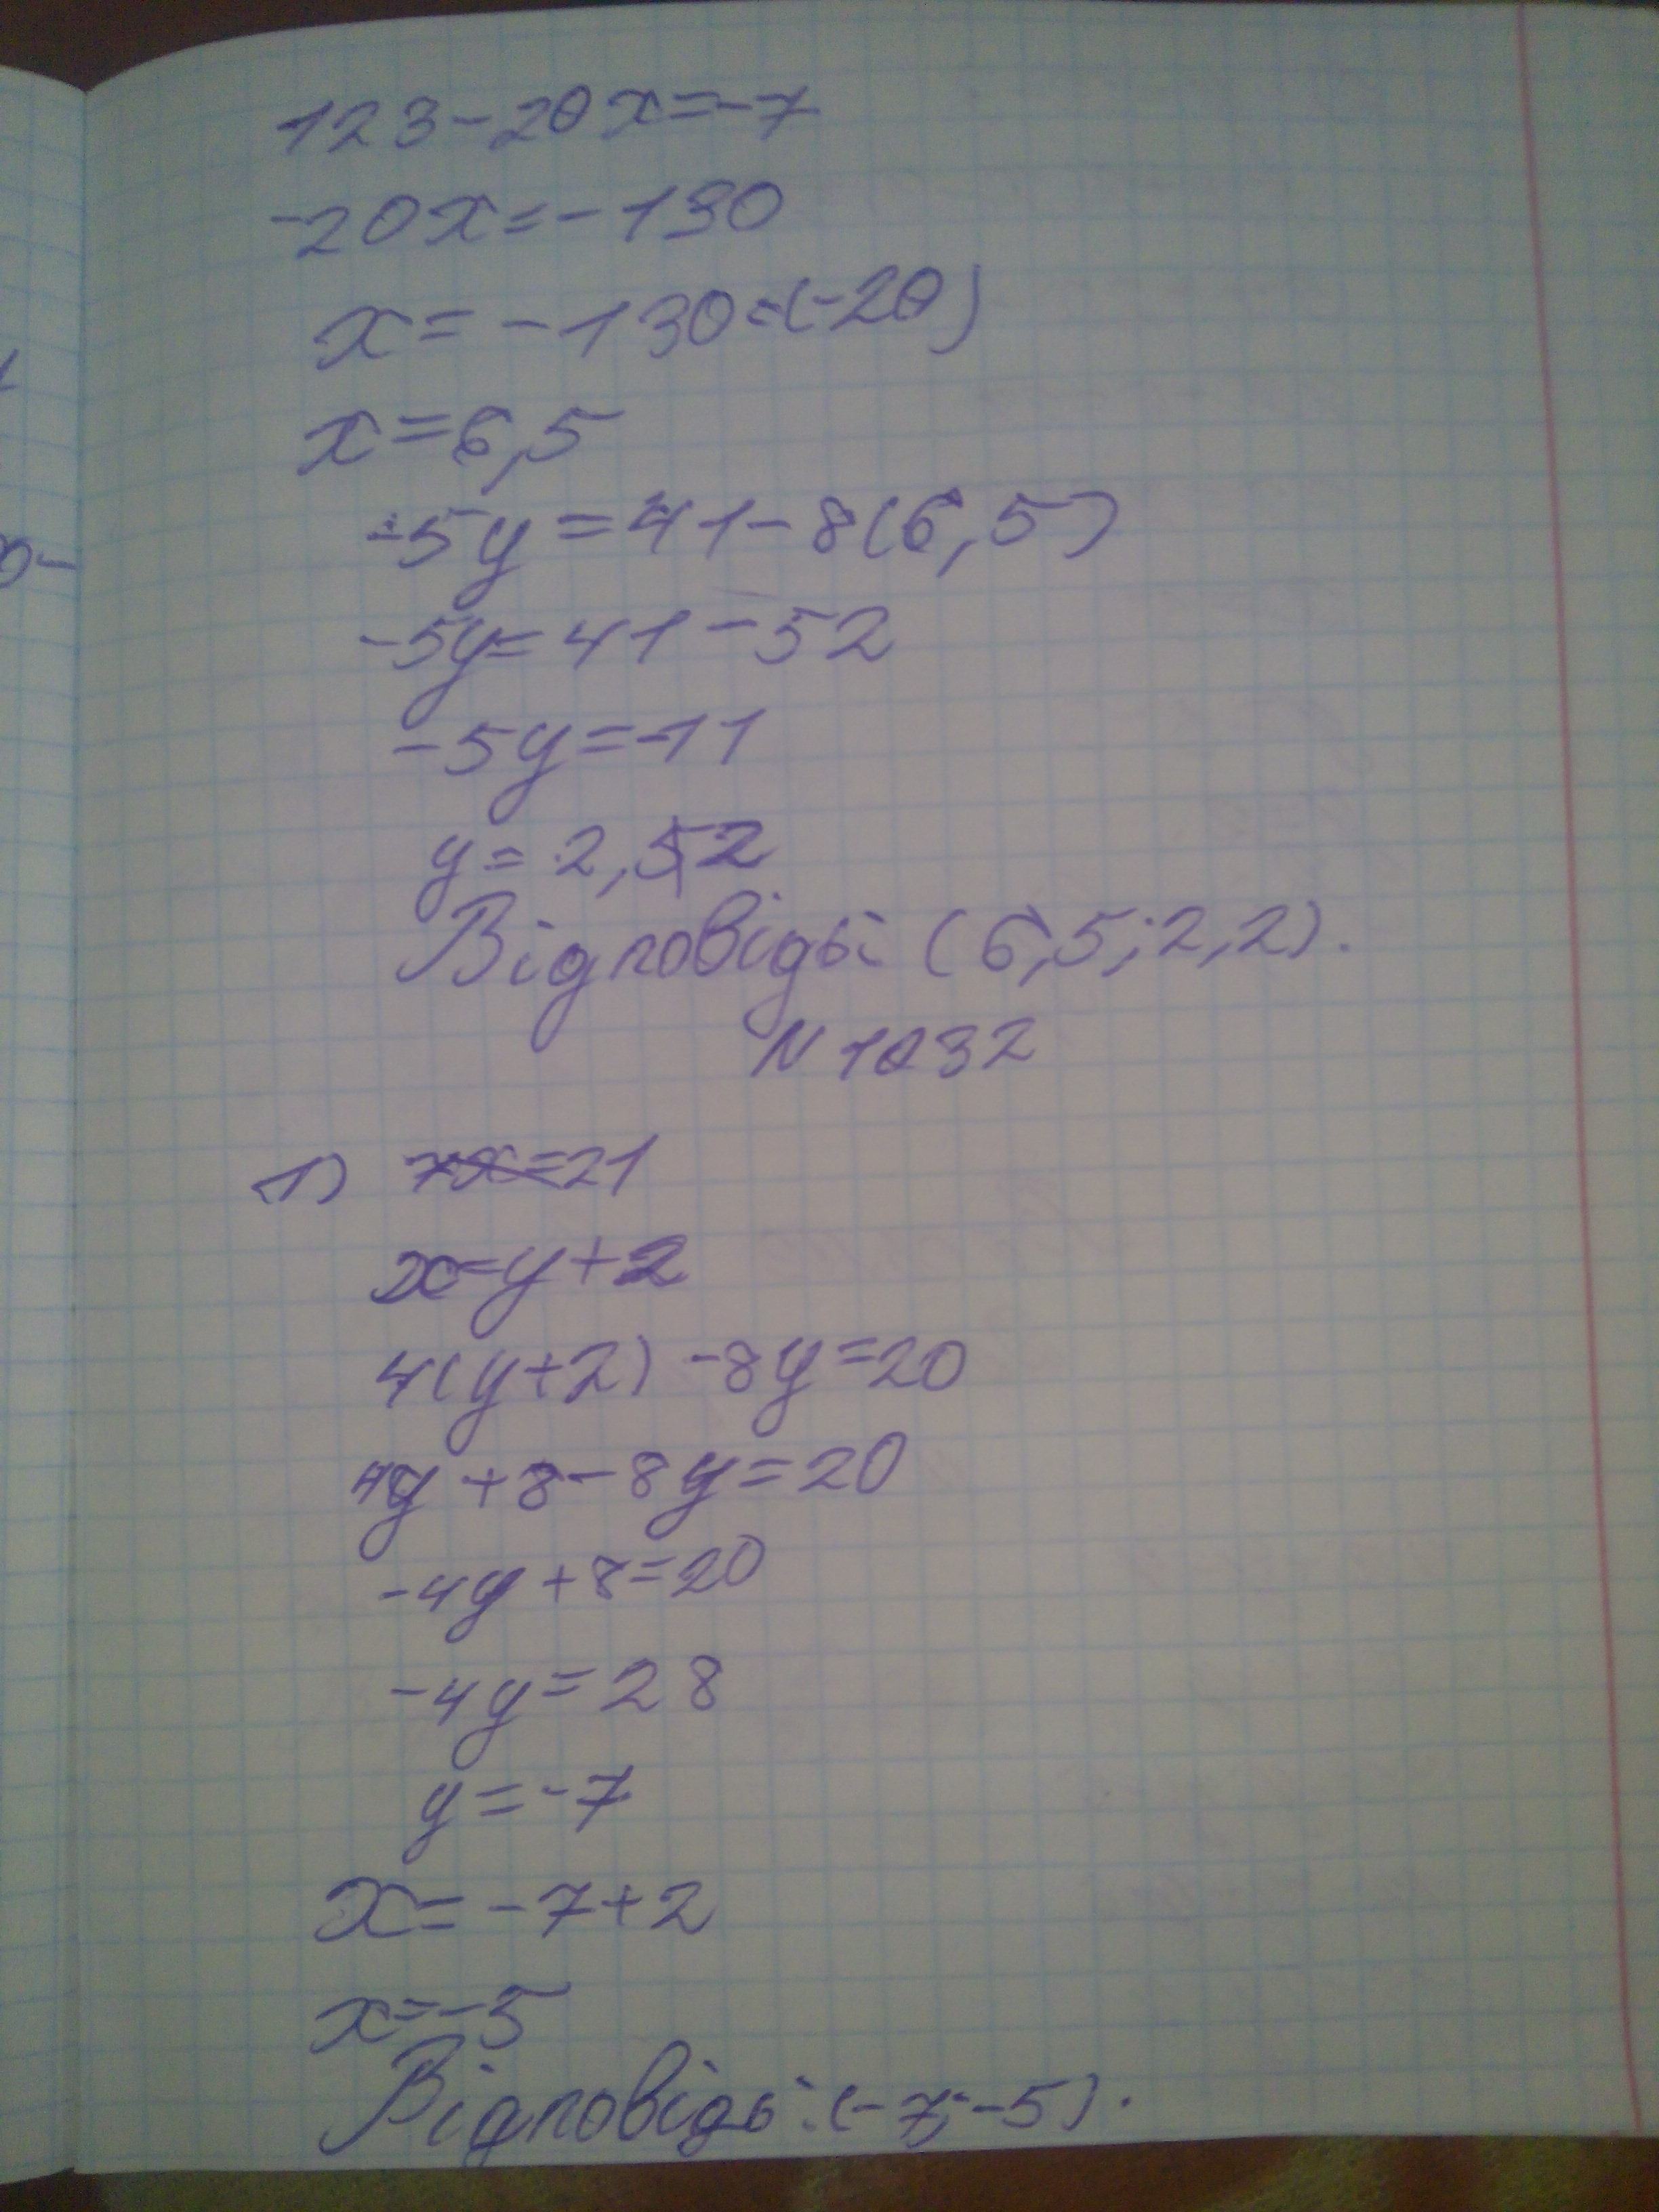 123-20x=-7
-20x=-130
x=-130:(-20)
x=6,5
-5y=41-8(6,5)
-5y=41-52
-5y=-11
y=2,2
Відповідь: (6,5;2,2).
N 1032
1) 7x=21
x=y+2
4(y+2)-8y=20
4y+8-8y=20
-4y+8=20
-4y=28
y=-7
x=-7+2
x=-5
Відповідь: (-7;-5).